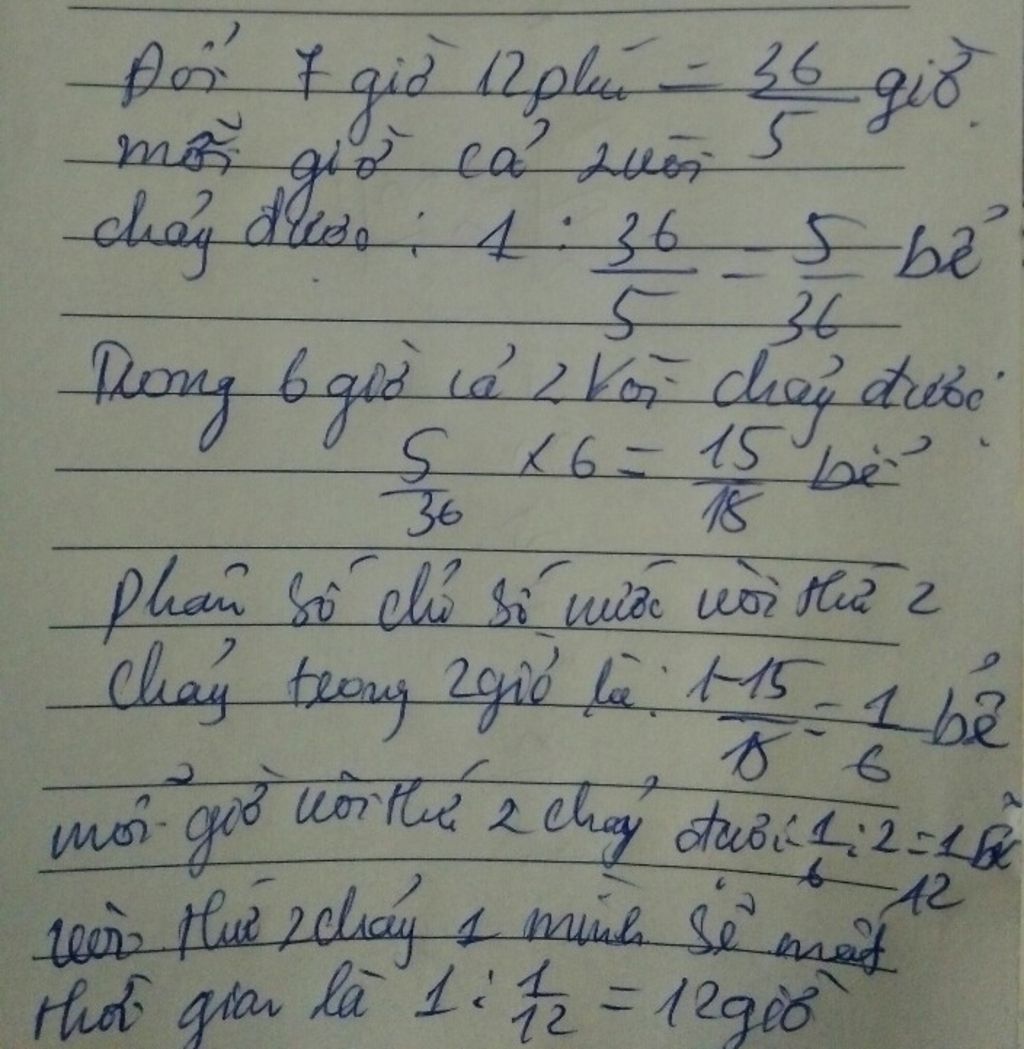 Đổi 7 giờ 12 phú = 36/5 giờ
mỗi giờ cả 2 vòi
chảy được : 1 : 36/5 = 5/36 bể
Trong 6 giờ cả 2 vòi chảy được:
5/36 x 6 = 15/18 bể
phân số chỉ số nước vòi thứ 2
chảy trong 2 giờ là: 1-15/18 = 1/6 bể
mỗi giờ vòi thứ 2 chảy được: 1/6 : 2 = 1/12 bể
vòi thứ 2 chảy 1 mình sẽ mất
thời gian là 1 : 1/12 = 12 giờ